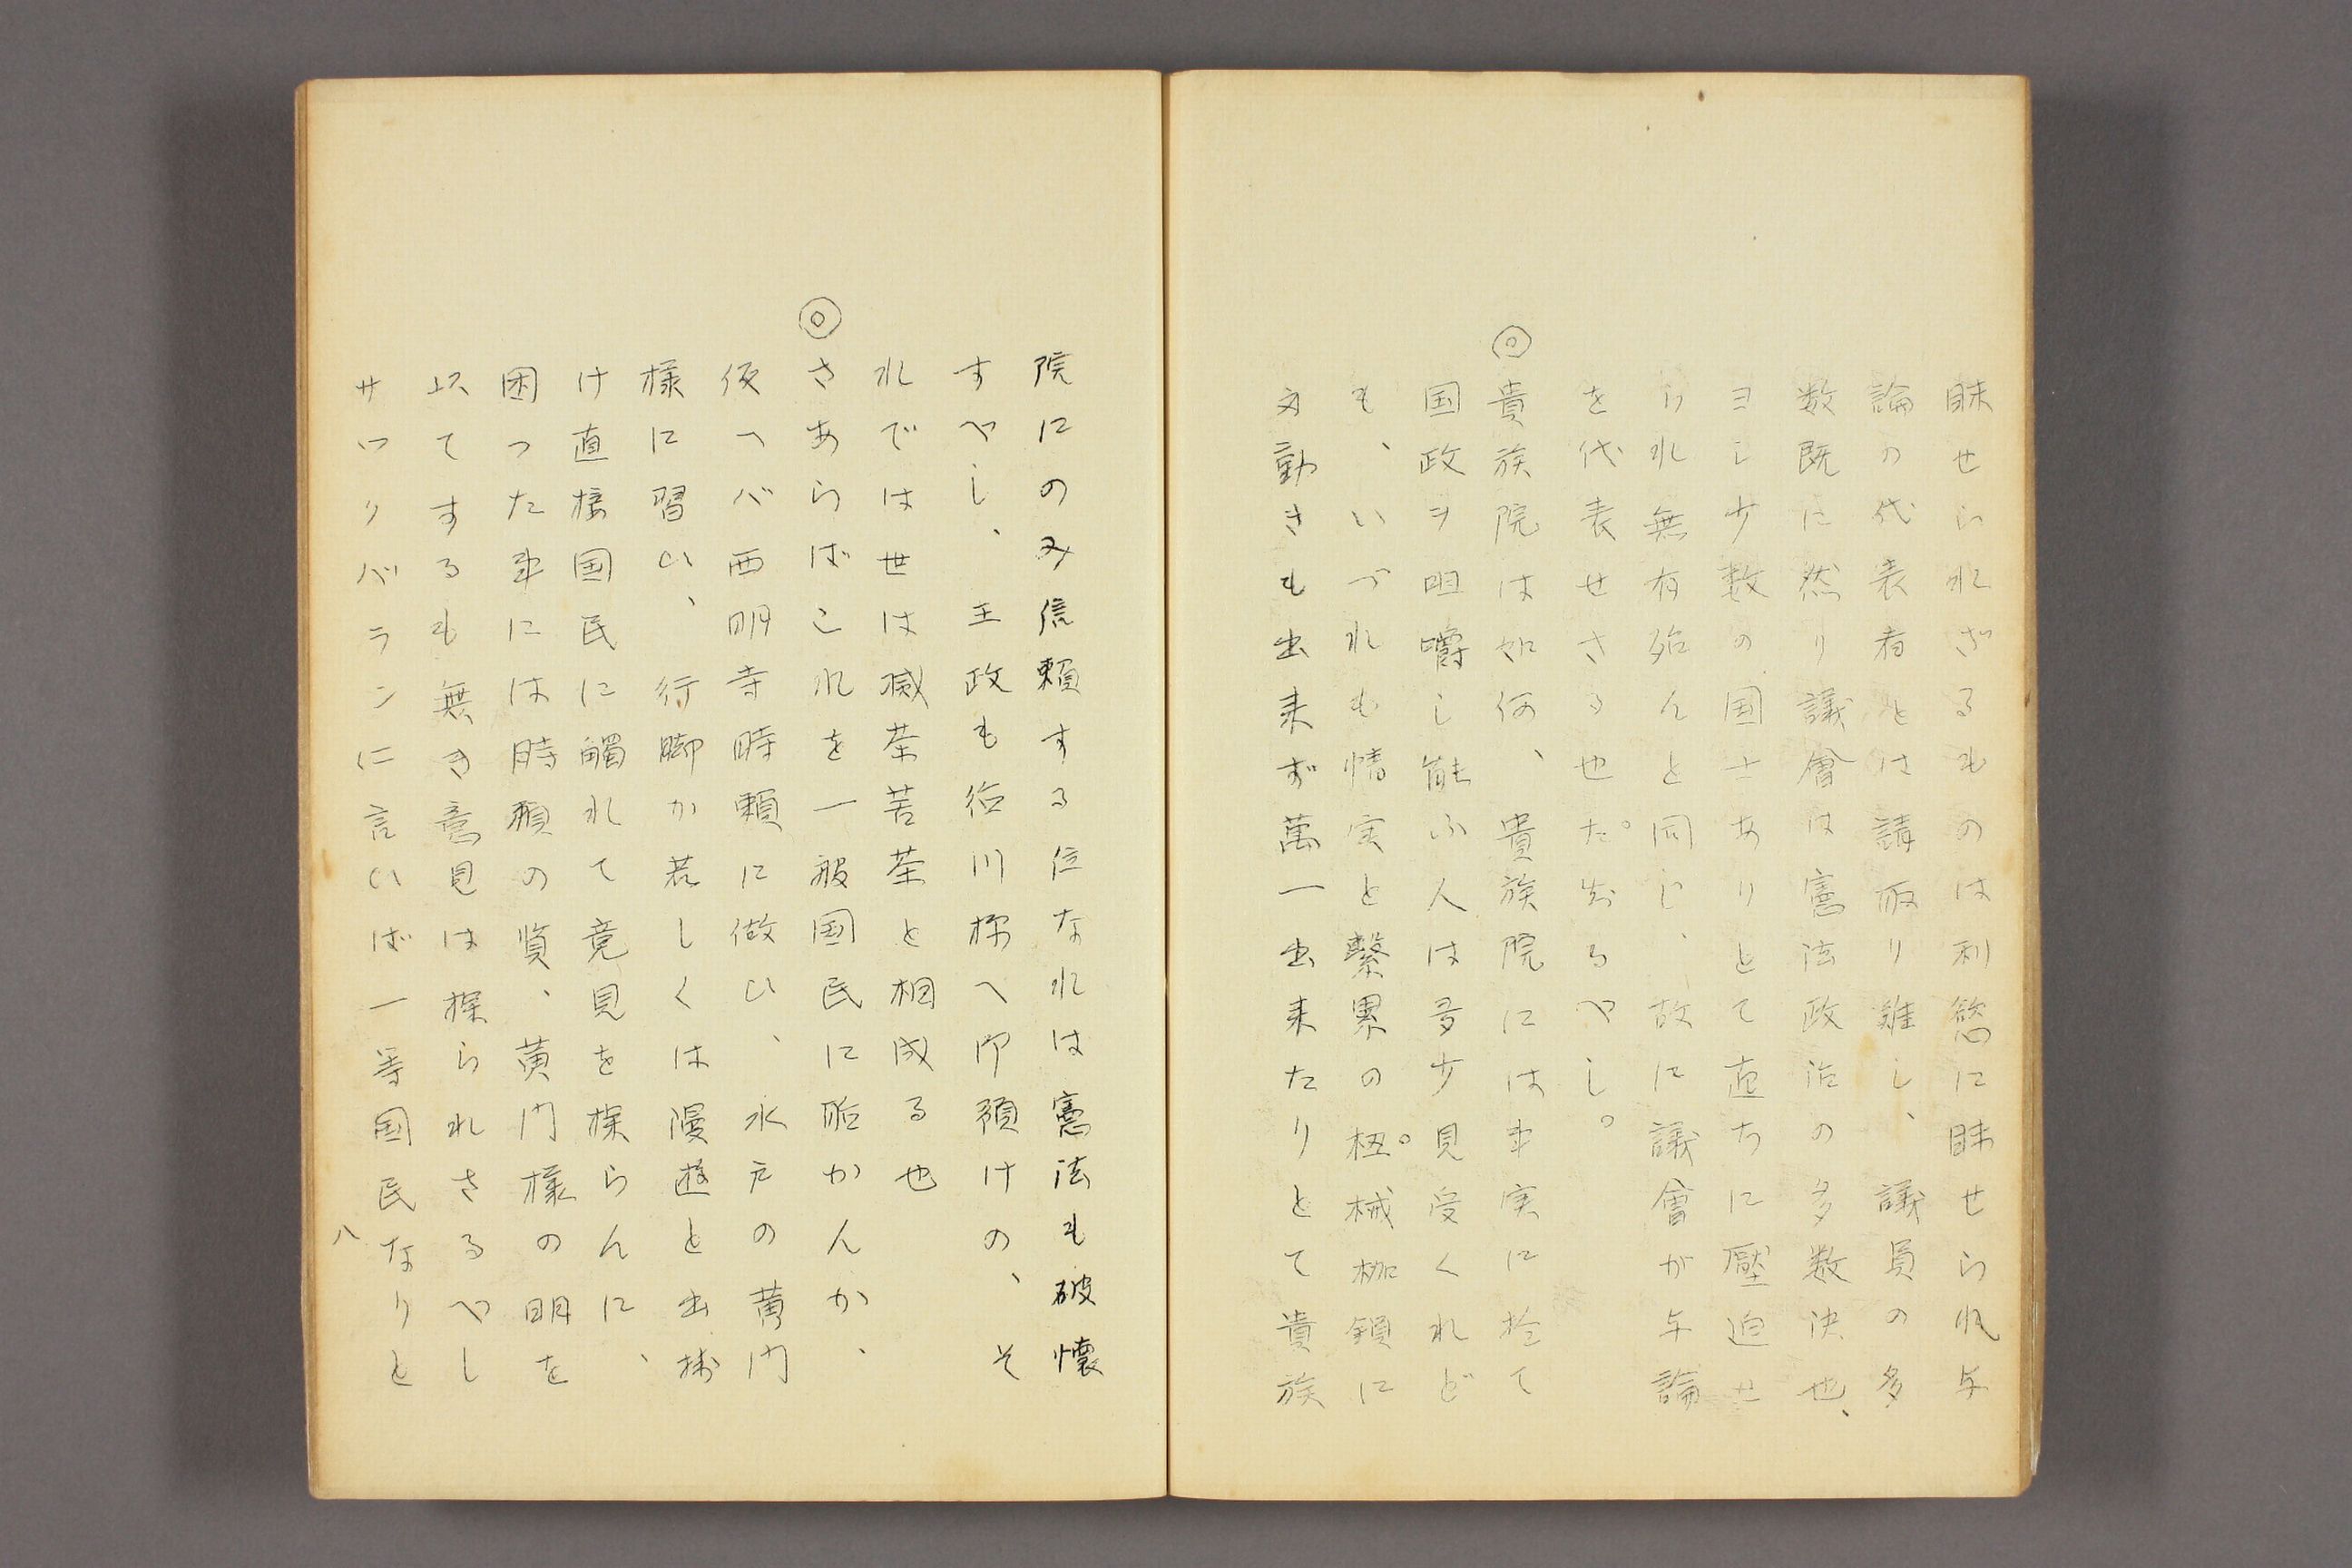 眛せられざるものは利慾に眛せられ与
論の代表者とは講取り難し、議員の多
数既に然り議會は憲法政治の多数決也、
ヨシ少数の国士ありとて直ちに壓迫せ
られ無有殆んと同じ、故に議會が与論
を代表せさる也た。知るべし。
◎貴族院は如何、貴族院には事実に於て
国政ヲ咀嚼し能ふ人は多少見受くれど
も、いづれも情実と繫累の杻。械枷鎖に
身動きも出来ず萬一出来たりとて貴族
院にのみ信頼する位なれは憲法も破懐
すべし、王政も徳川称へ御預けの、そ
れでは世は滅茶苦茶と相成る也
◎さあらばこれを一般国民に聴かんか、
仮へバ西明寺時頼に倣ひ、水戸の黄門
様に習い、行脚か若しくは漫遊と出掛
け直接国民に觸れて意見を採らんに、
困った事には時頼の賢、黄門様の明を
以てするも無き意見は探られさるべし
サワリバランに言いば一等国民なりと
八